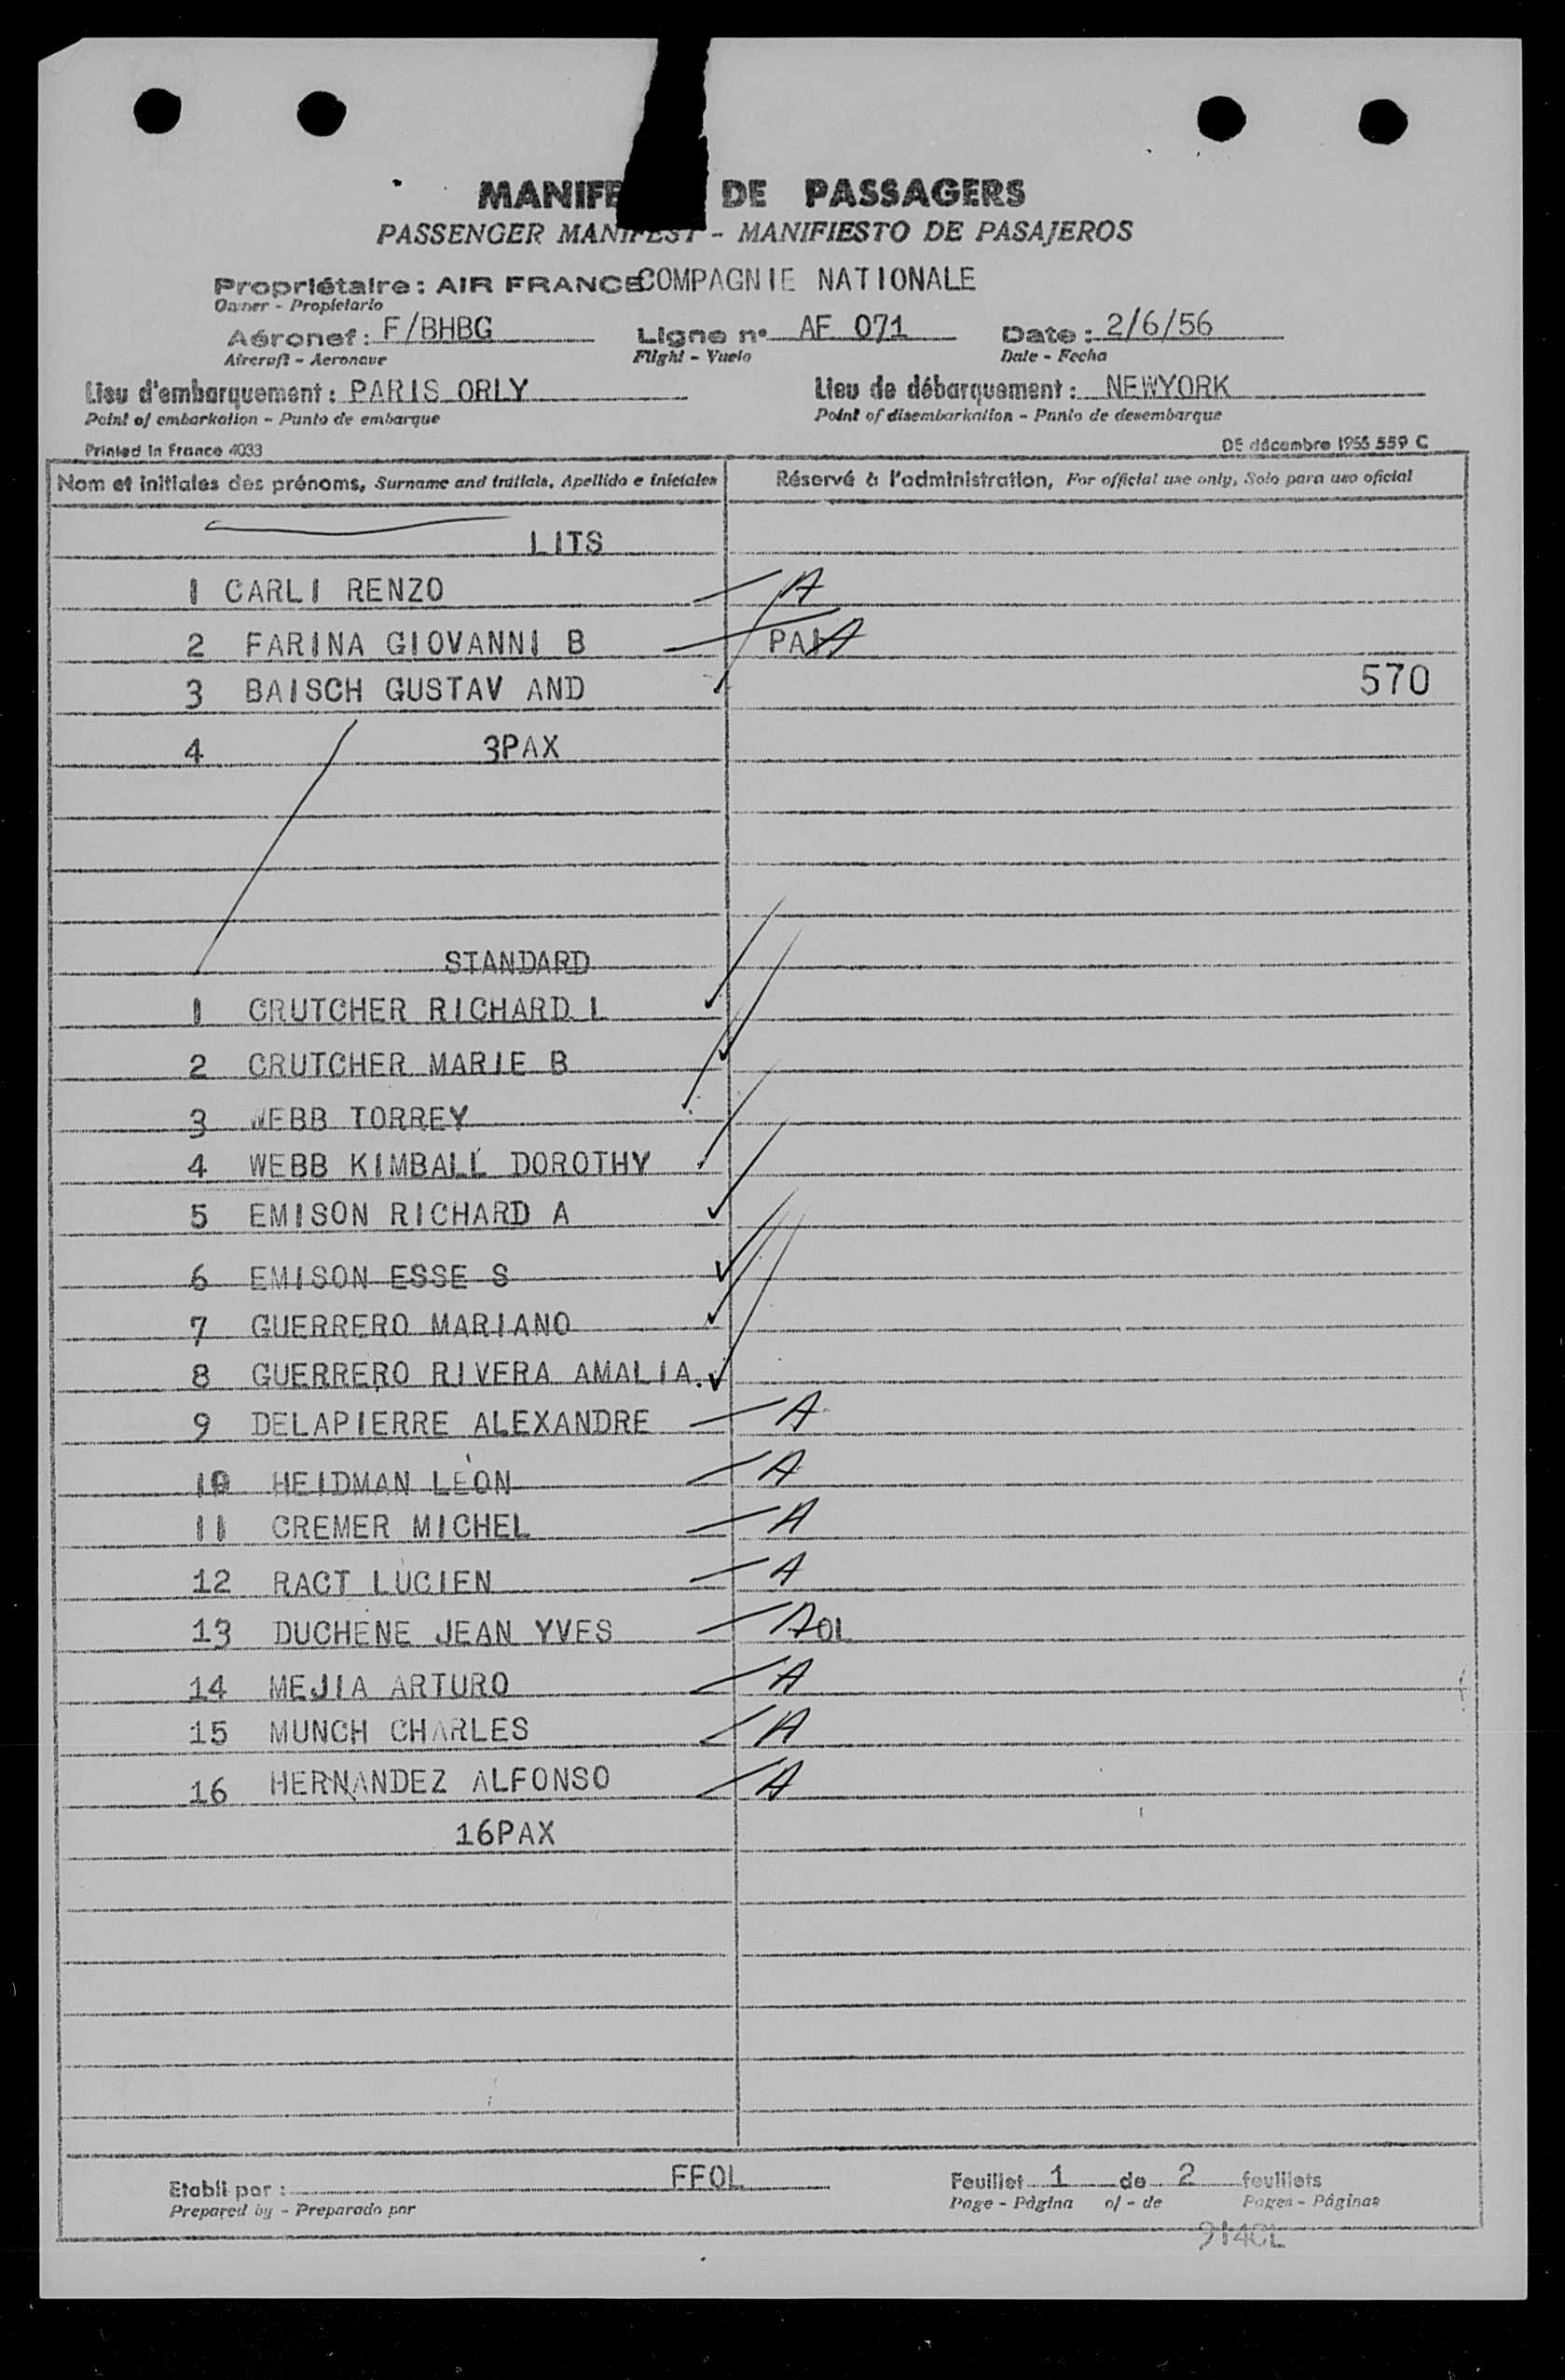 MANIFE DE PASSAGERS
PASSENGER MANIFEST - MANIFIESTO DE PASAJEROS
Propriétaire : AIR FRANCE COMPAGNIE NATIONALE
Owner - Propietario
Aéronef : F/BHBG Ligne n° AF 071 Date : 2/6/56
Aircraft - Aeronave Flight - Vuelo Date - Fecha
Lieu d'embarquement : PARIS ORLY Lieu de débarquement : NEWYORK
Point of embarkation - Punto de embarque Point of disembarkation - Punto de desembarque
Printed in France 4033 DE décembre 1955 559 C
Nom et initiales des prénoms, Surname and initials, Apellido e iniciales Réservé à l'administration, For official use only, Solo para uso oficial
LITS
1 CARLI RENZO A
2 FARINA GIOVANNI B PAI A
3 BAISCH GUSTAV AND 570
4 3PAX
STANDARD
1 CRUTCHER RICHARD L
2 CRUTCHER MARIE B
3 WEBB TORREY
4 WEBB KIMBALL DOROTHY
5 EMISON RICHARD A
6 EMISON ESSE S
7 GUERRERO MARIANO
8 GUERRERO RIVERA AMALIA.
9 DELAPIERRE ALEXANDRE A
10 HEIDMAN LEON A
11 CREMER MICHEL A
12 RACT LUCIEN A
13 DUCHENE JEAN YVES A OL
14 MEJIA ARTURO A
15 MUNCH CHARLES A
16 HERNANDEZ ALFONSO A
16PAX
Etabli par : FFOL Feuillet 1 de 2 feuillets
Prepared by - Preparado por Page - Página of - de Pages - Páginas